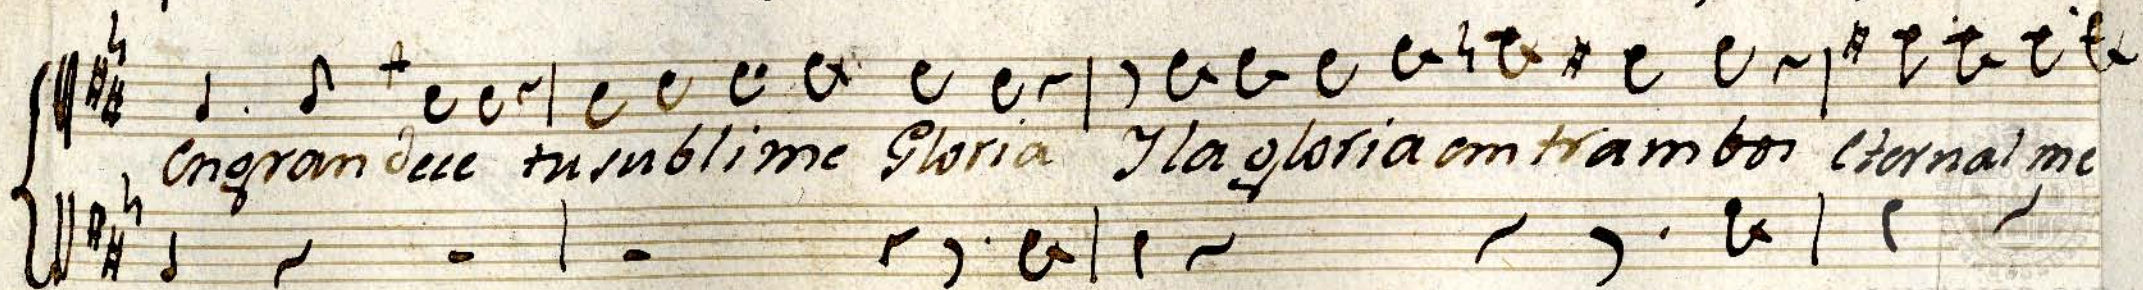 engrandece tu sublime Gloria Y la gloria em trambos eternal me